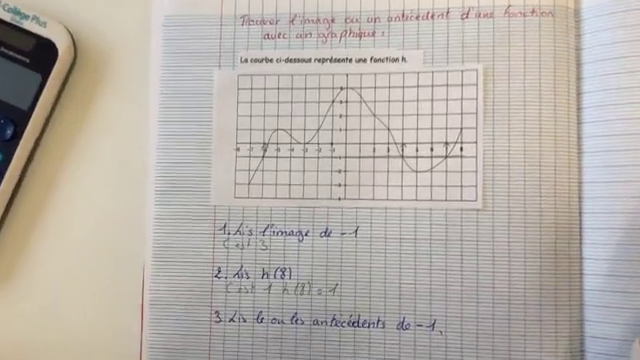 College Plus
Trouver l'image ou un antécédent d'une fonction
avec un graphique :
La courbe ci-dessous représente une fonction h.
1. Lis l'image de -1
C'est 3
2. Lis h(8)
C'est 1 h(8) = 1
3. Lis le ou les antécédents de -1.